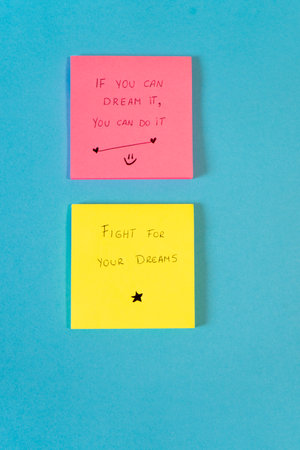 IF YOU CAN
DREAM IT,
YOU CAN DO IT
FIGHT FOR
YOUR DREAMS